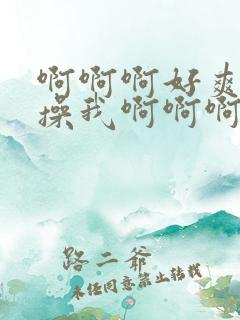 啊啊啊好爽
操我啊啊啊
路二爷
未经同意禁止转载